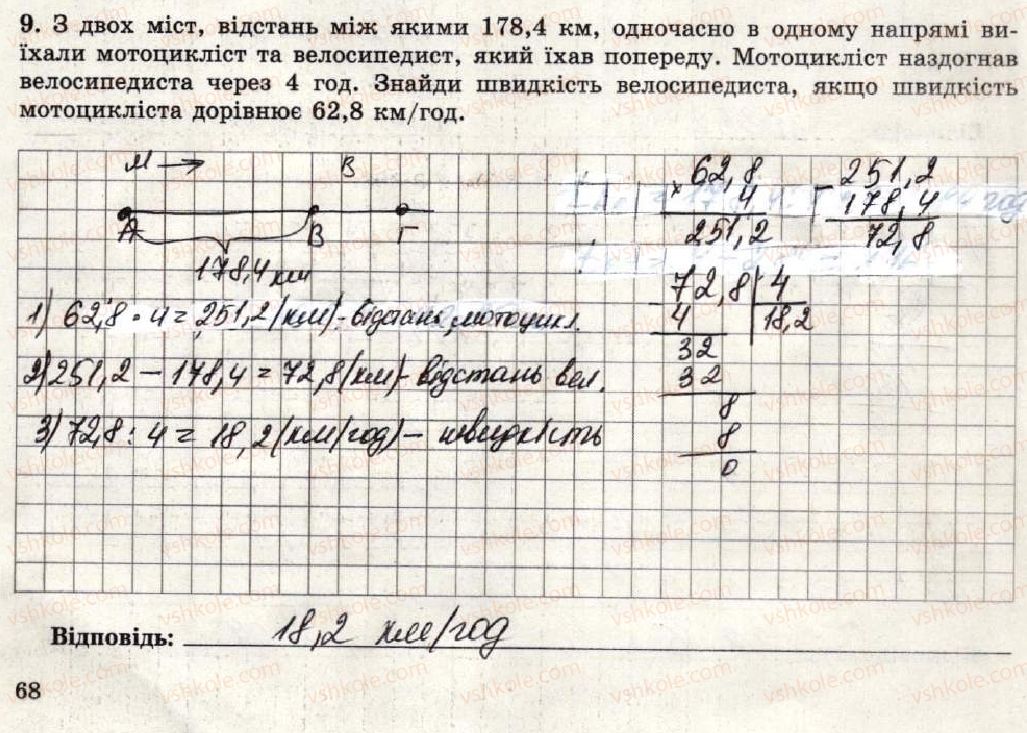 9. З двох міст, відстань між якими 178,4 км, одночасно в одному напрямі ви-
їхали мотоцикліст та велосипедист, який їхав попереду. Мотоцикліст наздогнав
велосипедиста через 4 год. Знайди швидкість велосипедиста, якщо швидкість
мотоцикліста дорівнює 62,8 км/год.
М → В
А В Г
178,4 км
62,8
× 4
251,2
- 251,2
178,4
72,8
1) 62,8 · 4 = 251,2 (км) - відстань мотоцикл.
2) 251,2 − 178,4 = 72,8 (км) - відстань вел.
3) 72,8 : 4 = 18,2 (км/год) − швидкість
- 72,8 | 4
4 18,2
32
32
8
8
0
Відповідь: 18,2 км/год
68